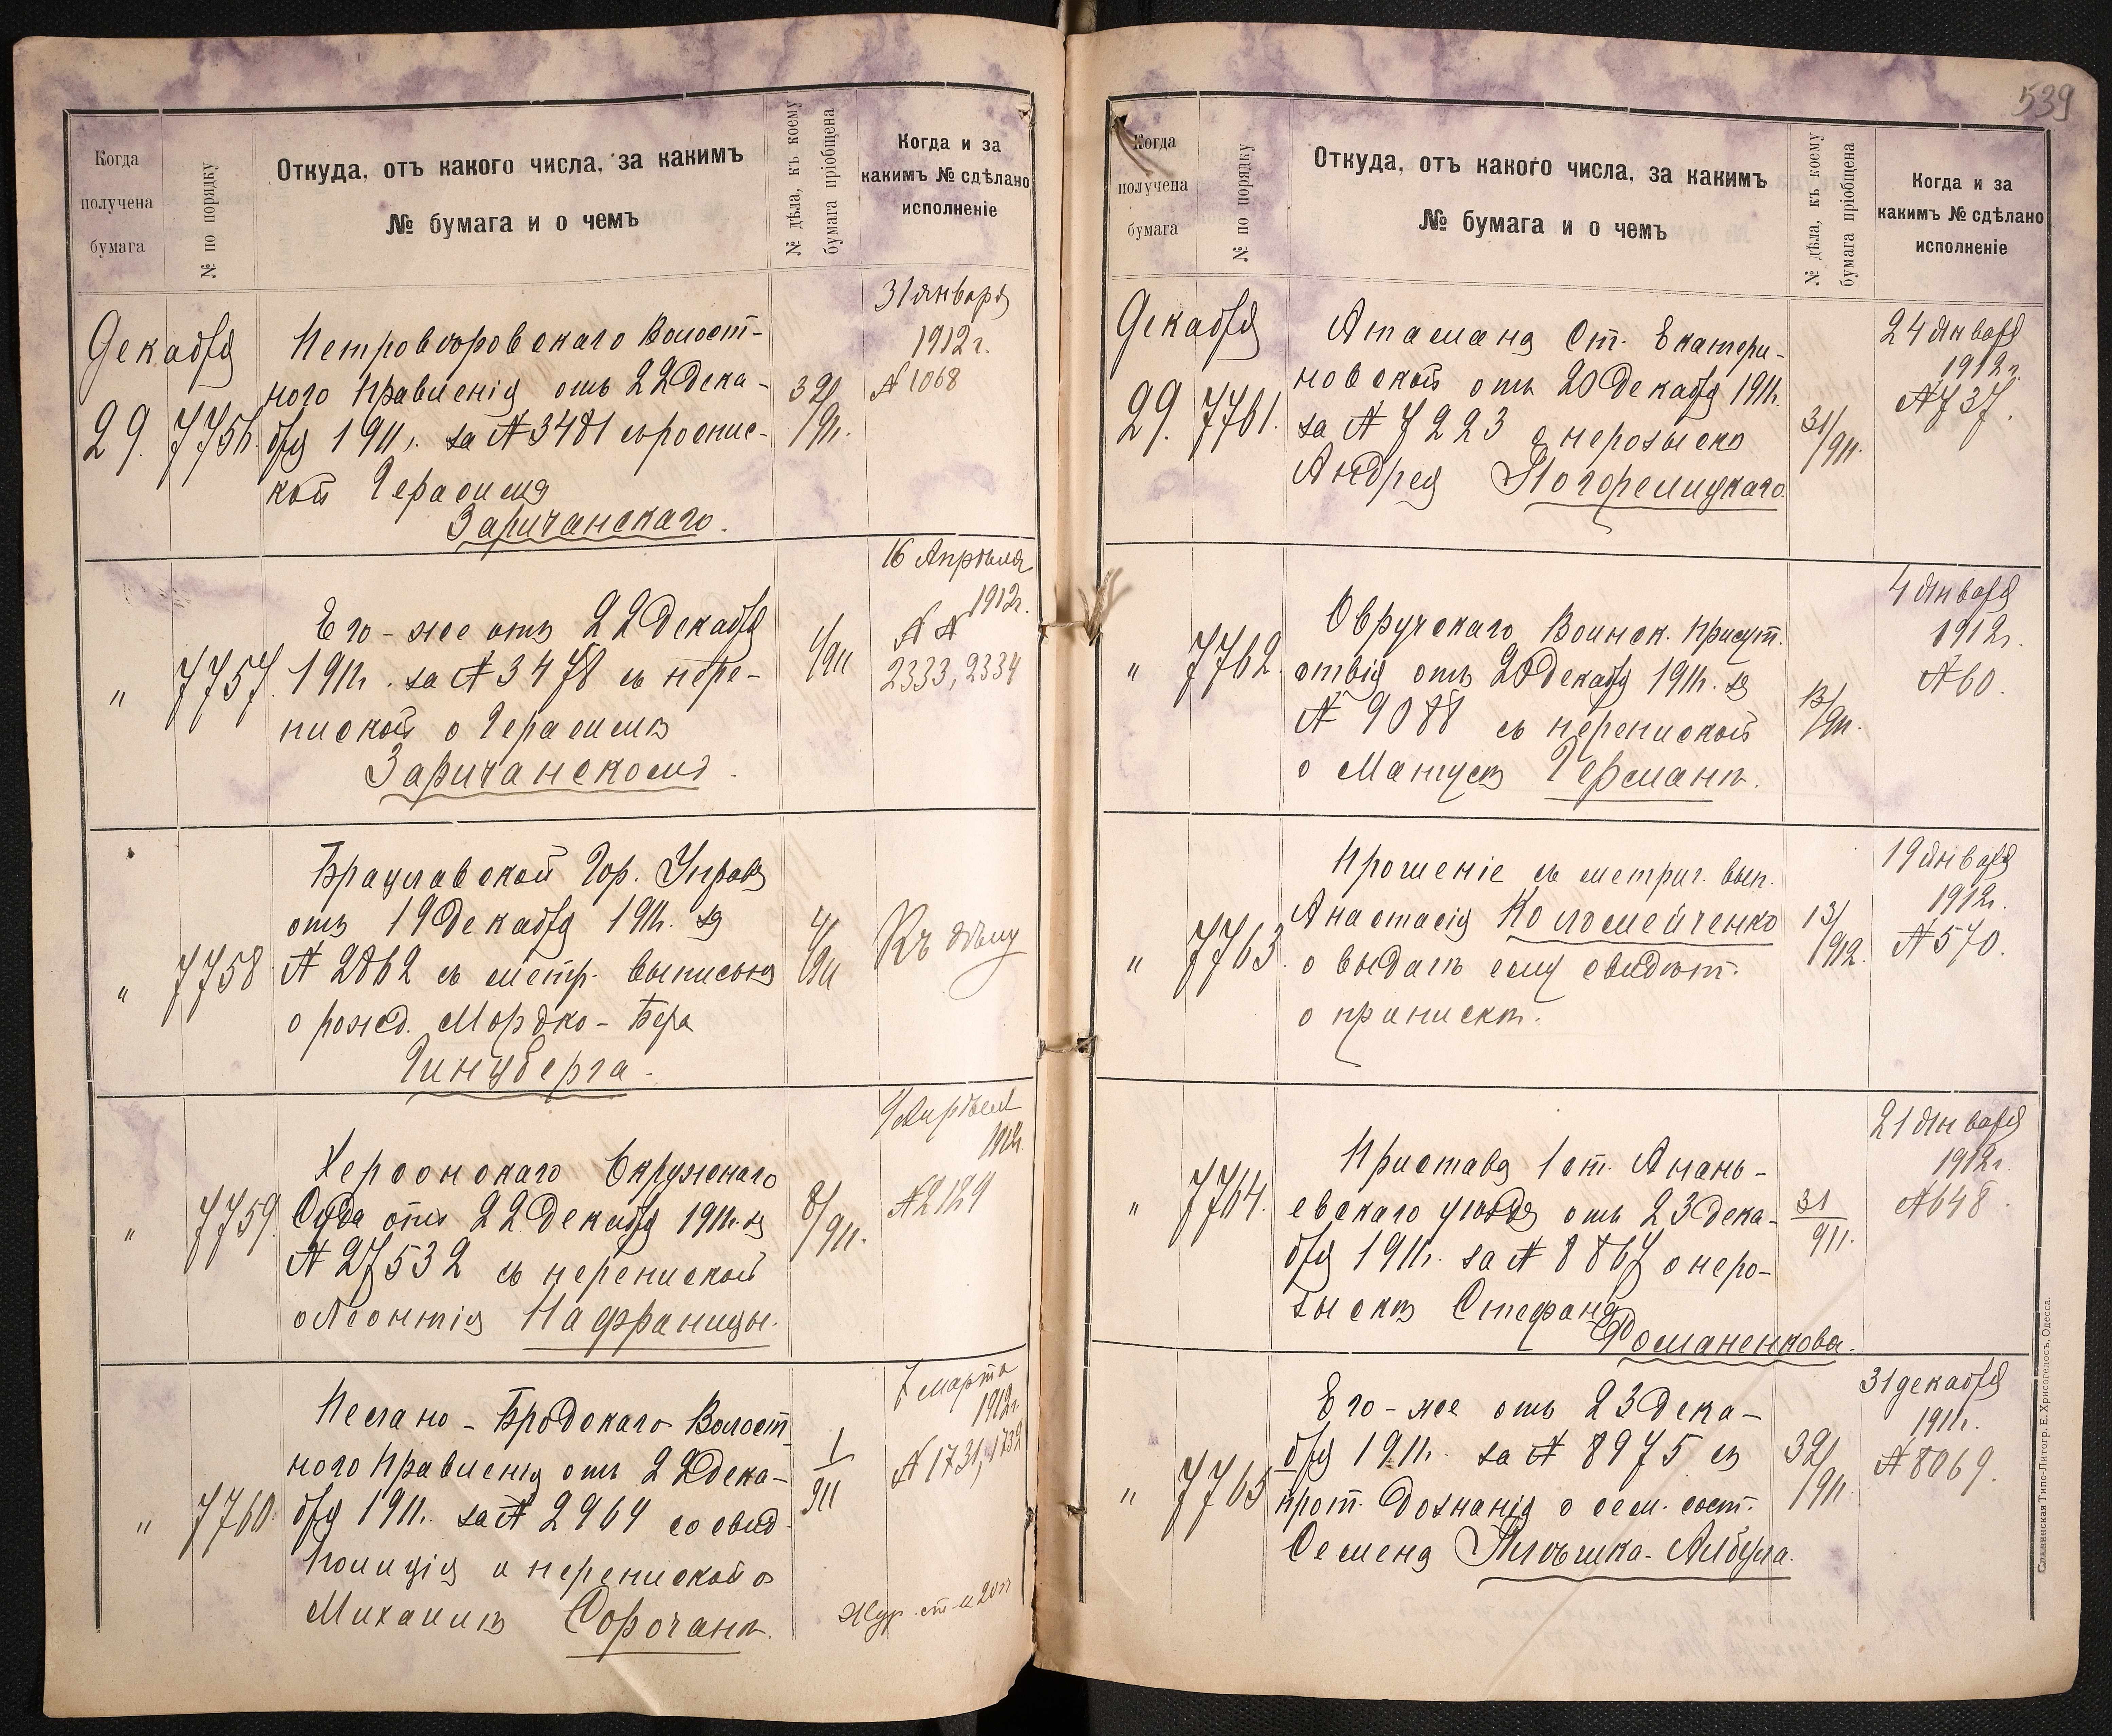 Когда
получена
бумага
№ по порядку
Откуда, отъ какого числа, за какимъ
№ бумага и о чемъ
№ дѣла, къ коему
бумага пріобщена
Когда и за
какимъ № сдѣлано
исполненіе
Декабря
29.
7756.
Петровѣровскаго Волост-
ного Правленія отъ 22 Дека-
бря 1911 г. за № 3481 съ
кой Герасима
Заричанскаго.
32/911.
31 января
1912 г.
№ 1068
"
7757.
Его-же отъ 22 Декабря
1911 г. за № 3478 съ пере-
пиской о Герасимѣ
Заричанскомъ.
1/911
16 Апрѣля
1912 г.
№ №
2333, 2334
"
7758
Брацлавской Гор. Управы
отъ 19 Декабря 1911 г. за
№ 2862 съ метр. выписью
о рожд. Мордко-Бера
Гинцберга.
4/911
Къ дѣлу
"
7759.
Херсонскаго Окружнаго
Суда отъ 22 Декабря 1911 г. за
№ 27532 съ перепиской
о Леонтія Нафраницы.
8/911.
9 Апрѣля
1912 г.
№ 2129
"
7760.
Песчано-Бродскаго Волост
ного Правленія отъ 22 Дека-
бря 1911 г. за № 2964 со свид.
Полиціи и перепиской о
Михаилѣ Сорочанѣ.
1/911
7 марта
1912 г.
№ 1731, 1732
Жур. ст.
539
Когда
получена
бумага
№ по порядку
Откуда, отъ какого числа, за какимъ
№ бумага и о чемъ
№ дѣла, къ коему
бумага пріобщена
Когда и за
какимъ № сдѣлано
исполненіе
Декабря
29.
7761.
Атамана Ст. Екатери-
новской отъ 20 Декабря 1911 г.
за № 7223 о нерозыскѣ
Андрея Погорелицкаго.
31/911.
24 Января
1912 г.
№ 737.
"
7762.
Овручскаго Воинск. Присут.
ствія отъ 20 Декабря 1911 г. за
№ 9088 съ перепиской
о Манусѣ Германѣ.
13/911.
4 Января
1912 г.
№ 60.
"
7763.
Прошеніе съ метрич. вып.
Анастасія Коломейченко
о выдачѣ ему свидѣт.
о припискѣ.
13/912.
19 Января
1912 г.
№ 570.
"
7764.
Пристава 1 ст. Анань-
евскаго уѣзда отъ 23 Дека-
бря 1911 г. за № 8867 о неро-
зыскѣ Стефана
Романенкова.
31/911.
21 Января
1912 г.
№ 648.
"
7765
Его-же отъ 23 Дека-
бря 1911 г. за № 8975 съ
прот. дознанія о сем. сост.
Семена Плѣшка-Албула.
32/911.
31 декабря
1911 г.
№ 8069.
Славянская Типо-Литогр. Е. Хрисогелосъ, Одесса.